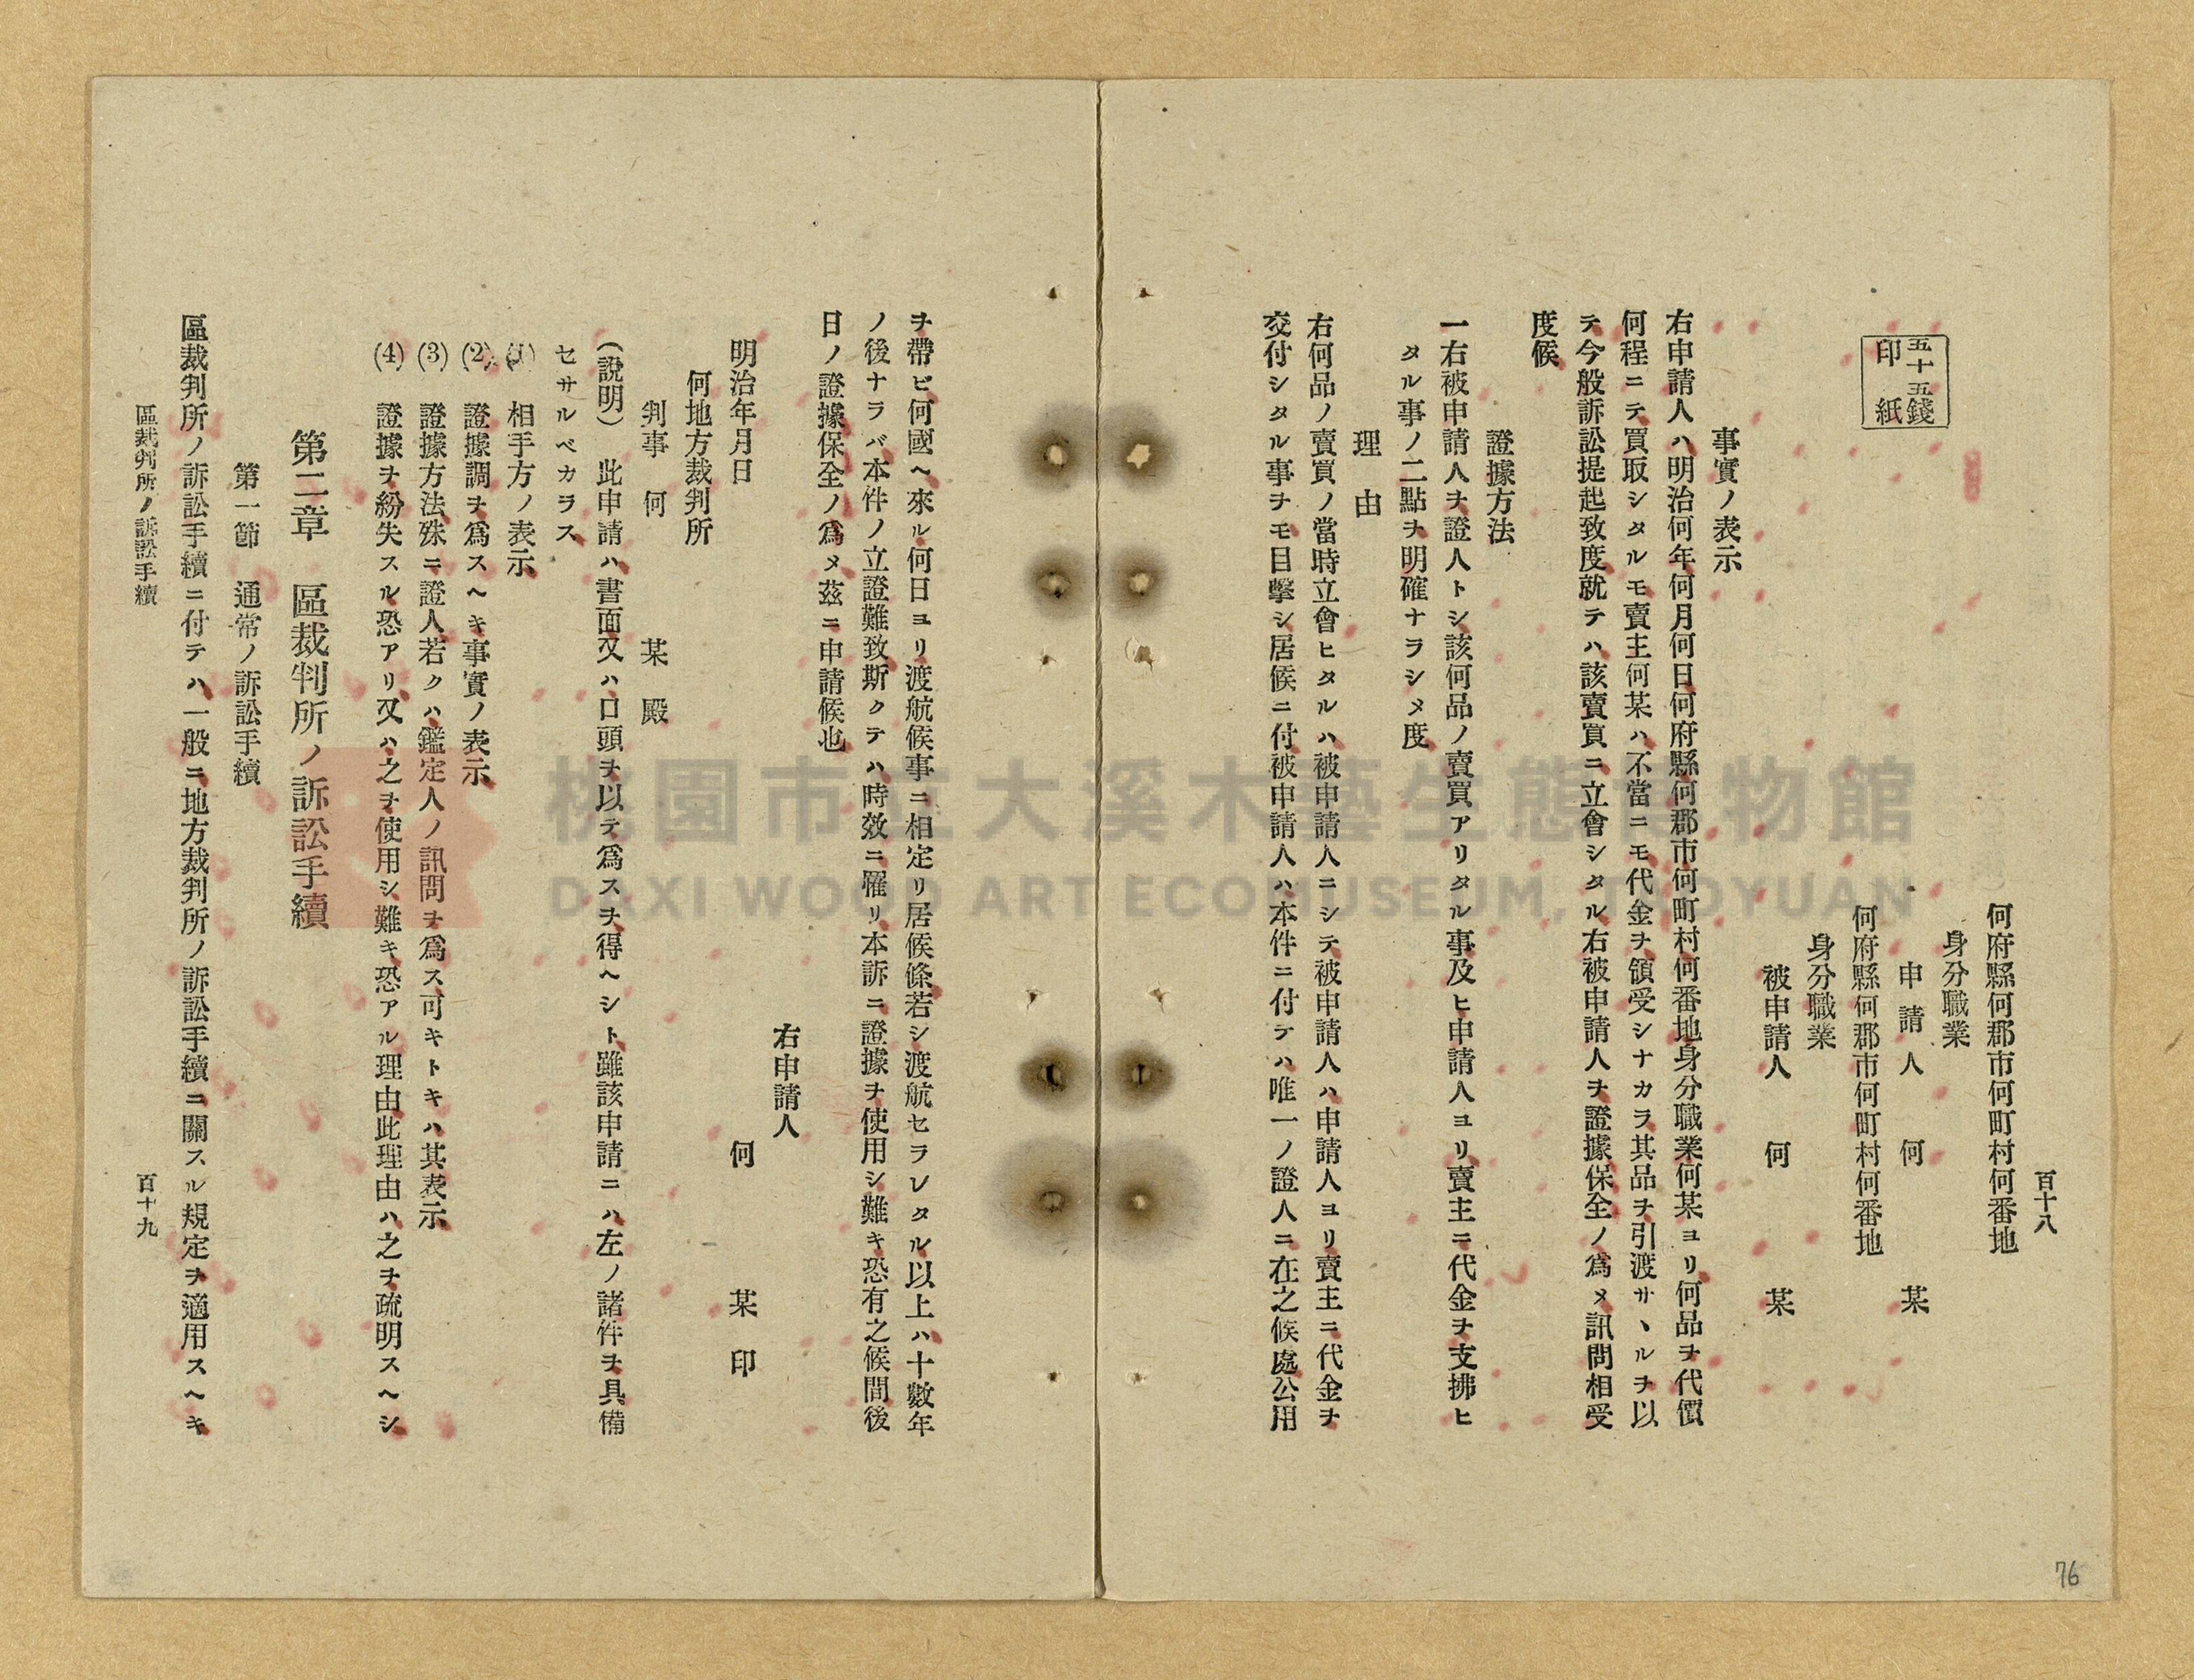 百十八
何府縣何郡市何町村何番地
身分職業
申請人　何　某
何府縣何郡市何町村何番地
身分職業
被申請人　何　某
五十五錢
印紙
事實ノ表示
右申請人ハ明治何年何月何日何府縣何郡市何町村何番地身分職業何某ヨリ何品ヲ代價
何程ニテ買取シタルモ賣主何某ハ不當ニモ代金ヲ領受シナカラ其品ヲ引渡サヽルヲ以
テ今般訴訟提起致度就テハ該賣買ニ立會シタル右被申請人ヲ證據保全ノ爲メ訊問相受
度候
證據方法
一右被申請人ヲ證人トシ該何品ノ賣買アリタル事及ヒ申請人ヨリ賣主ニ代金ヲ支拂ヒ
タル事ノ二點ヲ明確ナラシメ度
理由
右何品ノ賣買ノ當時立會ヒタルハ被申請人ニシテ被申請人ハ申請人ヨリ賣主ニ代金ヲ
交付シタル事ヲモ目擊シ居候ニ付被申請人ハ本件ニ付テハ唯一ノ證人ニ在之候處公用
ヲ帶ビ何國ヘ來ル何日ヨリ渡航候事ニ相定リ居候條若シ渡航セラレタル以上ハ十數年
ノ後ナラバ本件ノ立證難致斯クテハ時效ニ罹リ本訴ニ證據ヲ使用シ難キ恐有之候間後
日ノ證據保全ノ爲メ茲ニ申請候也
右申請人
明治年月日　何　某　印
何地方裁判所
判事　何　某　殿
（說明）　此申請ハ書面又ハ口頭ヲ以テ爲スヲ得ヘシト雖該申請ニハ左ノ諸件ヲ具備
セサルベカラス
(1)　相手方ノ表示
(2)　證據調ヲ爲スヘキ事實ノ表示
(3)　證據方法殊ニ證人若クハ鑑定人ノ訊問ヲ爲ス可キトキハ其表示
(4)　證據ヲ紛失スル恐アリ又ハ之ヲ使用シ難キ恐アル理由此理由ハ之ヲ疏明スヘシ
第二章　區裁判所ノ訴訟手續
第一節　通常ノ訴訟手續
區裁判所ノ訴訟手續ニ付テハ一般ニ地方裁判所ノ訴訟手續ニ關スル規定ヲ適用スヘキ
區裁判所ノ訴訟手續　百十九
76
桃園市立大溪木藝生態博物館
DAXI WOOD ART ECOMUSEUM, TAOYUAN